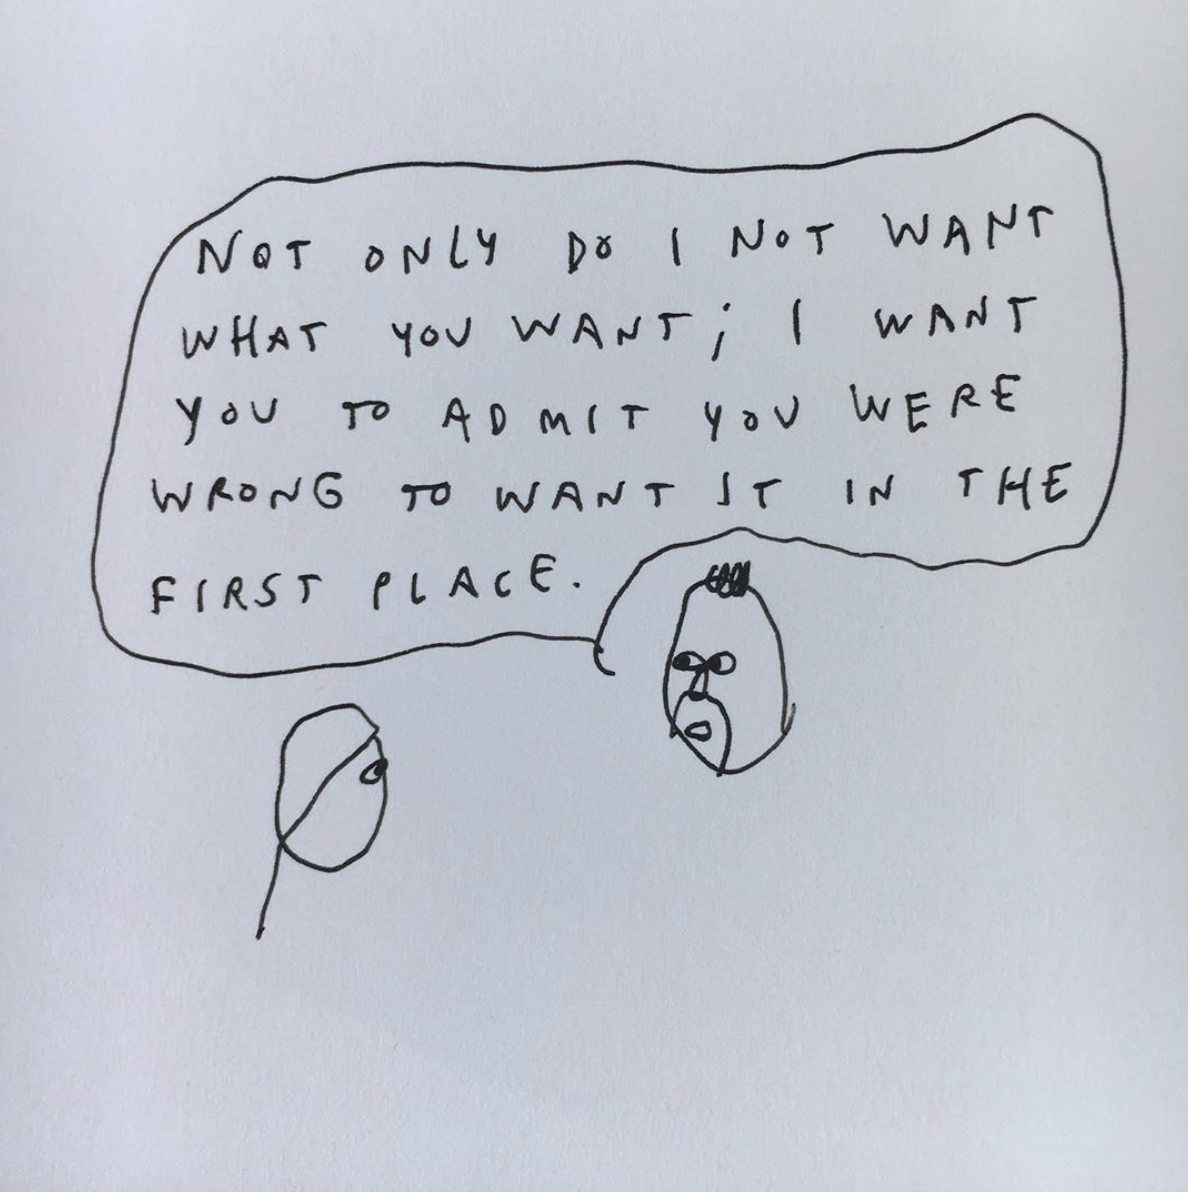 NOT ONLY DO I NOT WANT
WHAT YOU WANT; I WANT
YOU TO ADMIT YOU WERE
WRONG TO WANT IT IN THE
FIRST PLACE.